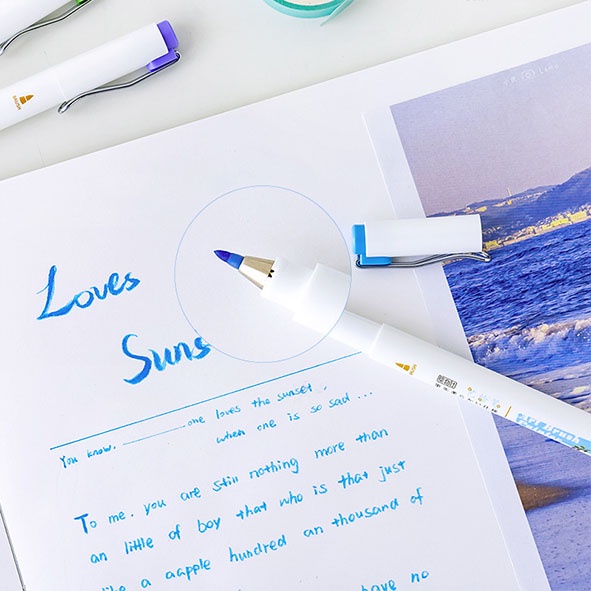 Loves
Suns
You know. one loves the sunset,
when one is so sad ...
To me. you are still nothing more than
an little of boy that who is that just
like a aapple hundred an thousand of
have no